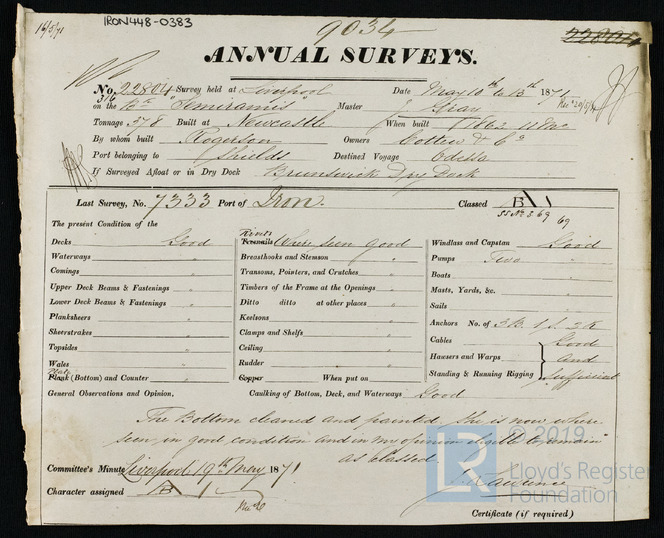 16/5/71
IRON448-0383
9034
ANNUAL SURVEYS.
No. 22804 Survey held at Liverpool Date May 10th to 13th 1871
on the Bk Semiramis Master J Gray
Tonnage 378 Built at Newcastle When built 1862 11 Mo
By whom built Rogerson Owners Cottew & Co
Port belonging to Shields Destined Voyage Odessa
If Surveyed Afloat or in Dry Dock Brunswick Dry Dock
Last Survey, No. 7333 Port of Iron. Classed B 1
SS No 3. 69
69
The present Condition of the
Decks Good
Waterways "
Comings "
Upper Deck Beams & Fastenings "
Lower Deck Beams & Fastenings "
Planksheers "
Sheerstrakes "
Topsides "
Wales "
Plank (Bottom) and Counter "
Rivets
Treenails Where seen good
Breasthooks and Stemson "
Transoms, Pointers, and Crutches "
Timbers of the Frame at the Openings "
Ditto ditto at other places "
Keelsons "
Clamps and Shelfs "
Ceiling "
Rudder "
Copper When put on
Windlass and Capstan Good
Pumps Two "
Boats "
Masts, Yards, &c. "
Sails "
Anchors No. of 3 B. 1 S. 2 K
Cables Good
Hawsers and Warps and
Standing & Running Rigging Sufficient
General Observations and Opinion, Caulking of Bottom, Deck, and Waterways Good
The Bottom cleaned and painted She is now where
seen, in good condition and in my opinion eligible to remain
as classed.
Committee's Minute Liverpool 19th May 1871
J. Lawrence
Character assigned B 1
Certificate (if required)
© 2019
LR
Lloyd's Register
Foundation